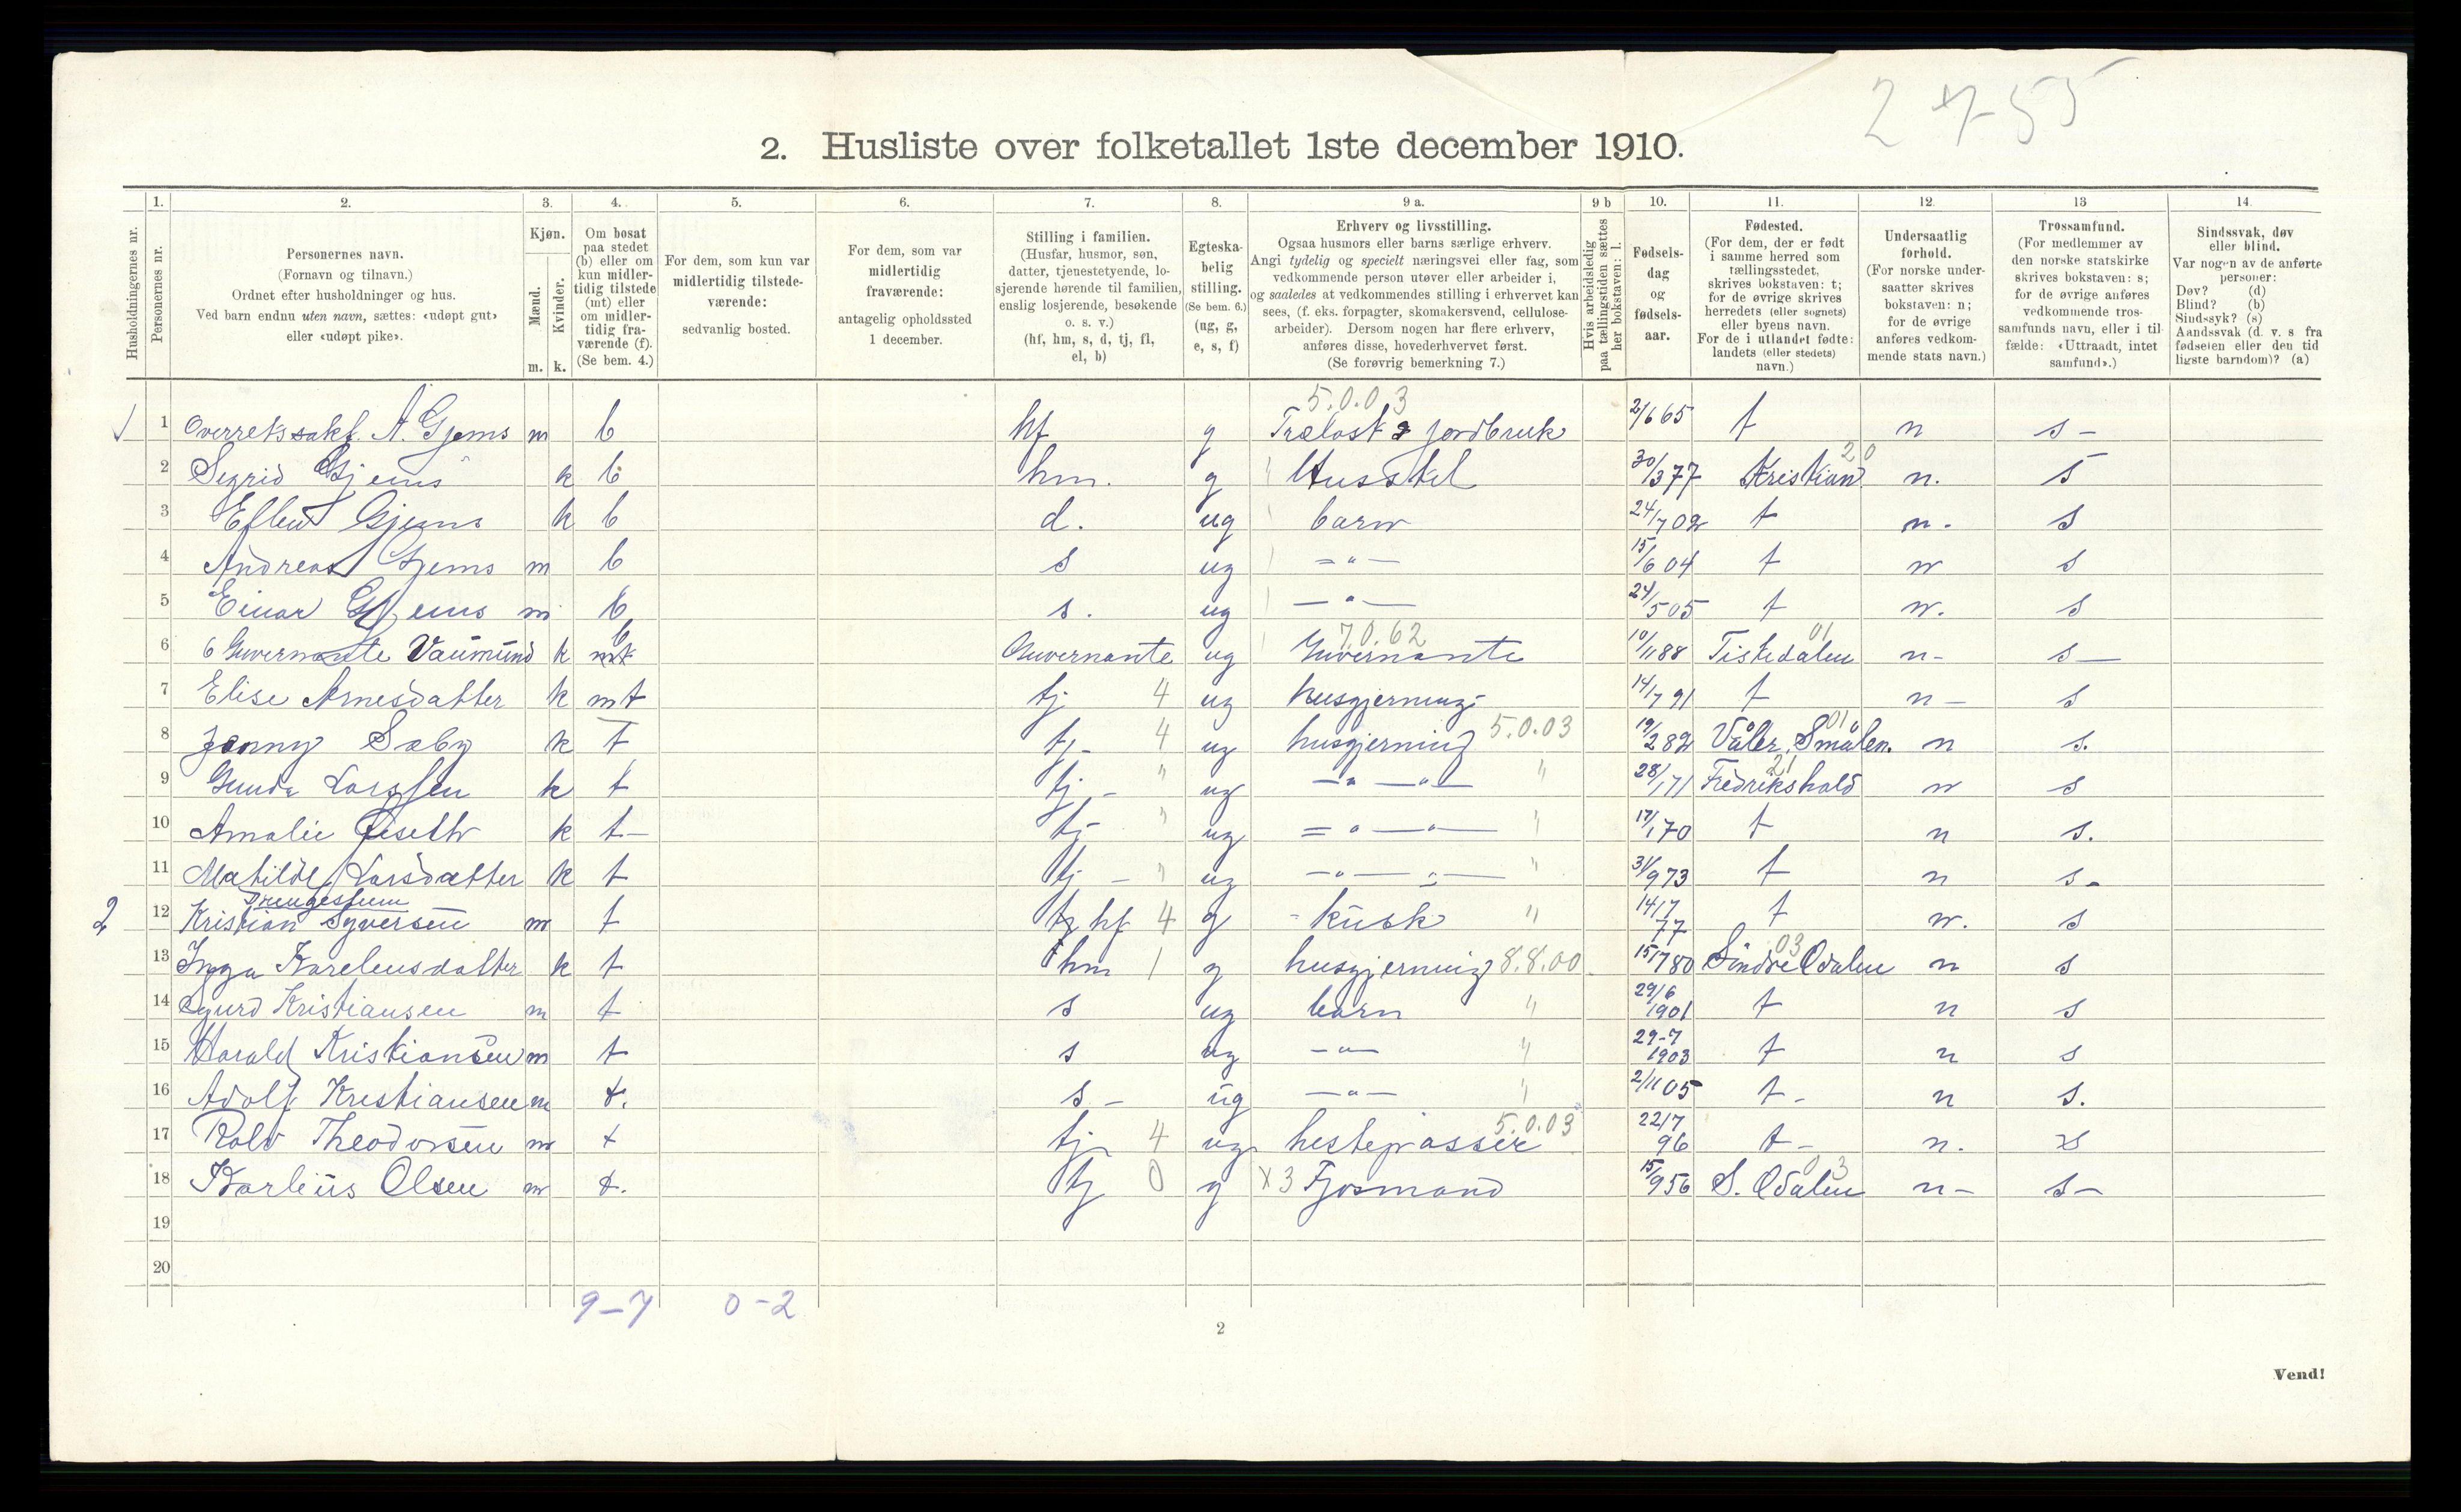 2755
2. Husliste over folketallet 1ste december 1910.
Husholdningernes nr.
1. Personernes nr.
2. Personernes navn. (Fornavn og tilnavn.) Ordnet efter husholdninger og hus. Ved barn endnu uten navn, sættes: «udøpt gut» eller «udøpt pike».
3. Kjøn. Mænd. m. Kvinder. k.
4. Om bosat paa stedet (b) eller om kun midlertidig tilstede (mt) eller om midlertidig fraværende (f). (Se bem. 4.)
5. For dem, som kun var midlertidig tilstedeværende: sedvanlig bosted.
6. For dem, som var midlertidig fraværende: antagelig opholdssted 1 december.
7. Stilling i familien. (Husfar, husmor, søn, datter, tjenestetyende, losjerende hørende til familien, enslig losjerende, besøkende o. s. v.) (hf, hm, s, d, tj, fl, el, b)
8. Egteskabelig stilling. (Se bem. 6.) (ug, g, e, s, f)
9 a. Erhverv og livsstilling. Ogsaa husmors eller barns særlige erhverv. Angi tydelig og specielt næringsvei eller fag, som vedkommende person utøver eller arbeider i, og saaledes at vedkommendes stilling i erhvervet kan sees, (f. eks. forpagter, skomakersvend, cellulosearbeider). Dersom nogen har flere erhverv, anføres disse, hovederhvervet først. (Se forøvrig bemerkning 7.)
9 b Hvis arbeidsledig paa tællingstiden sættes her bokstaven: l.
10. Fødselsdag og fødselsaar.
11. Fødested. (For dem, der er født i samme herred som tællingsstedet, skrives bokstaven: t; for de øvrige skrives herredets (eller sognets) eller byens navn. For de i utlandet fødte: landets (eller stedets) navn.)
12. Undersaatlig forhold. (For norske undersaatter skrives bokstaven: n; for de øvrige anføres vedkommende stats navn.)
13 Trossamfund. (For medlemmer av den norske statskirke skrives bokstaven: s; for de øvrige anføres vedkommende trossamfunds navn, eller i tilfælde: «Uttraadt, intet samfund».)
14. Sindssvak, døv eller blind. Var nogen av de anførte personer: Døv? (d) Blind? (b) Sindssyk? (s) Aandssvak (d. v. s. fra fødselen eller den tidligste barndom)? (a)
5.0.03
1 Overretssakf. A. Gjems m b hf g Trælast & jordbruk 2/6 65 t n s -
2 Sigrid Gjems k b hm. g Husstel 30/3 77 Kristian 20 n. s
3 Ellen Gjems k b d. ug barn 24/7 02 t n. s
4 Andreas Gjems m b s ug - " - 15/6 04 t n s
5 Einar Gjems m b s. ug - " - 24/5 05 t n. s
6 Guvernante Vaumund k mt b Guvernante ug Guvernante 7.0.62 10/1 88 Tistedalen 01 n - s -
7 Elise Arnesdatter k mt tj 4 ug husgjerning 14/7 91 t n - s
8 Jenny Sæby k t tj - 4 ug husgjerning 5.0.03 19/2 82 Våler, Smålen. 01 n s.
9 Gunda Larssen k t tj - " ug - " - " - " 28/1 71 Fredrikshald 21 n s
10 Amalie k t - tj - " ug - " - " - " 17/1 70 t n s.
11 Matilde Larsdatter k t tj - " ug - " - " - " 31/9 73 t n s -
Drengestuen
2 12 Kristian Syversen m t tj hf 4 g - kusk " 14/7 77 t n. s
13 Inga Karelensdatter k t hm 1 g husgjerning 8.8.00 15/7 80 Söndre Odalen 03 n s
14 Sigurd Kristiansen m t s ug barn " 29/6 1901 t n s
15 Harald Kristiansen m t s ug - " - " 29-7 1903 t n s
16 Adolf Kristiansen m t. s - ug - " - " 2/11 05 t - n s.
17 Rolv Theodorsen m t tj 4 ug hestepasser 5.0.03 22/7 96 t - n. s
18 Karlius Olsen m t. tj 0 g x3 Fjosmand 15/9 56 S. Odalen 03 n - s -
19
20
9-7 0-2
2
Vend!